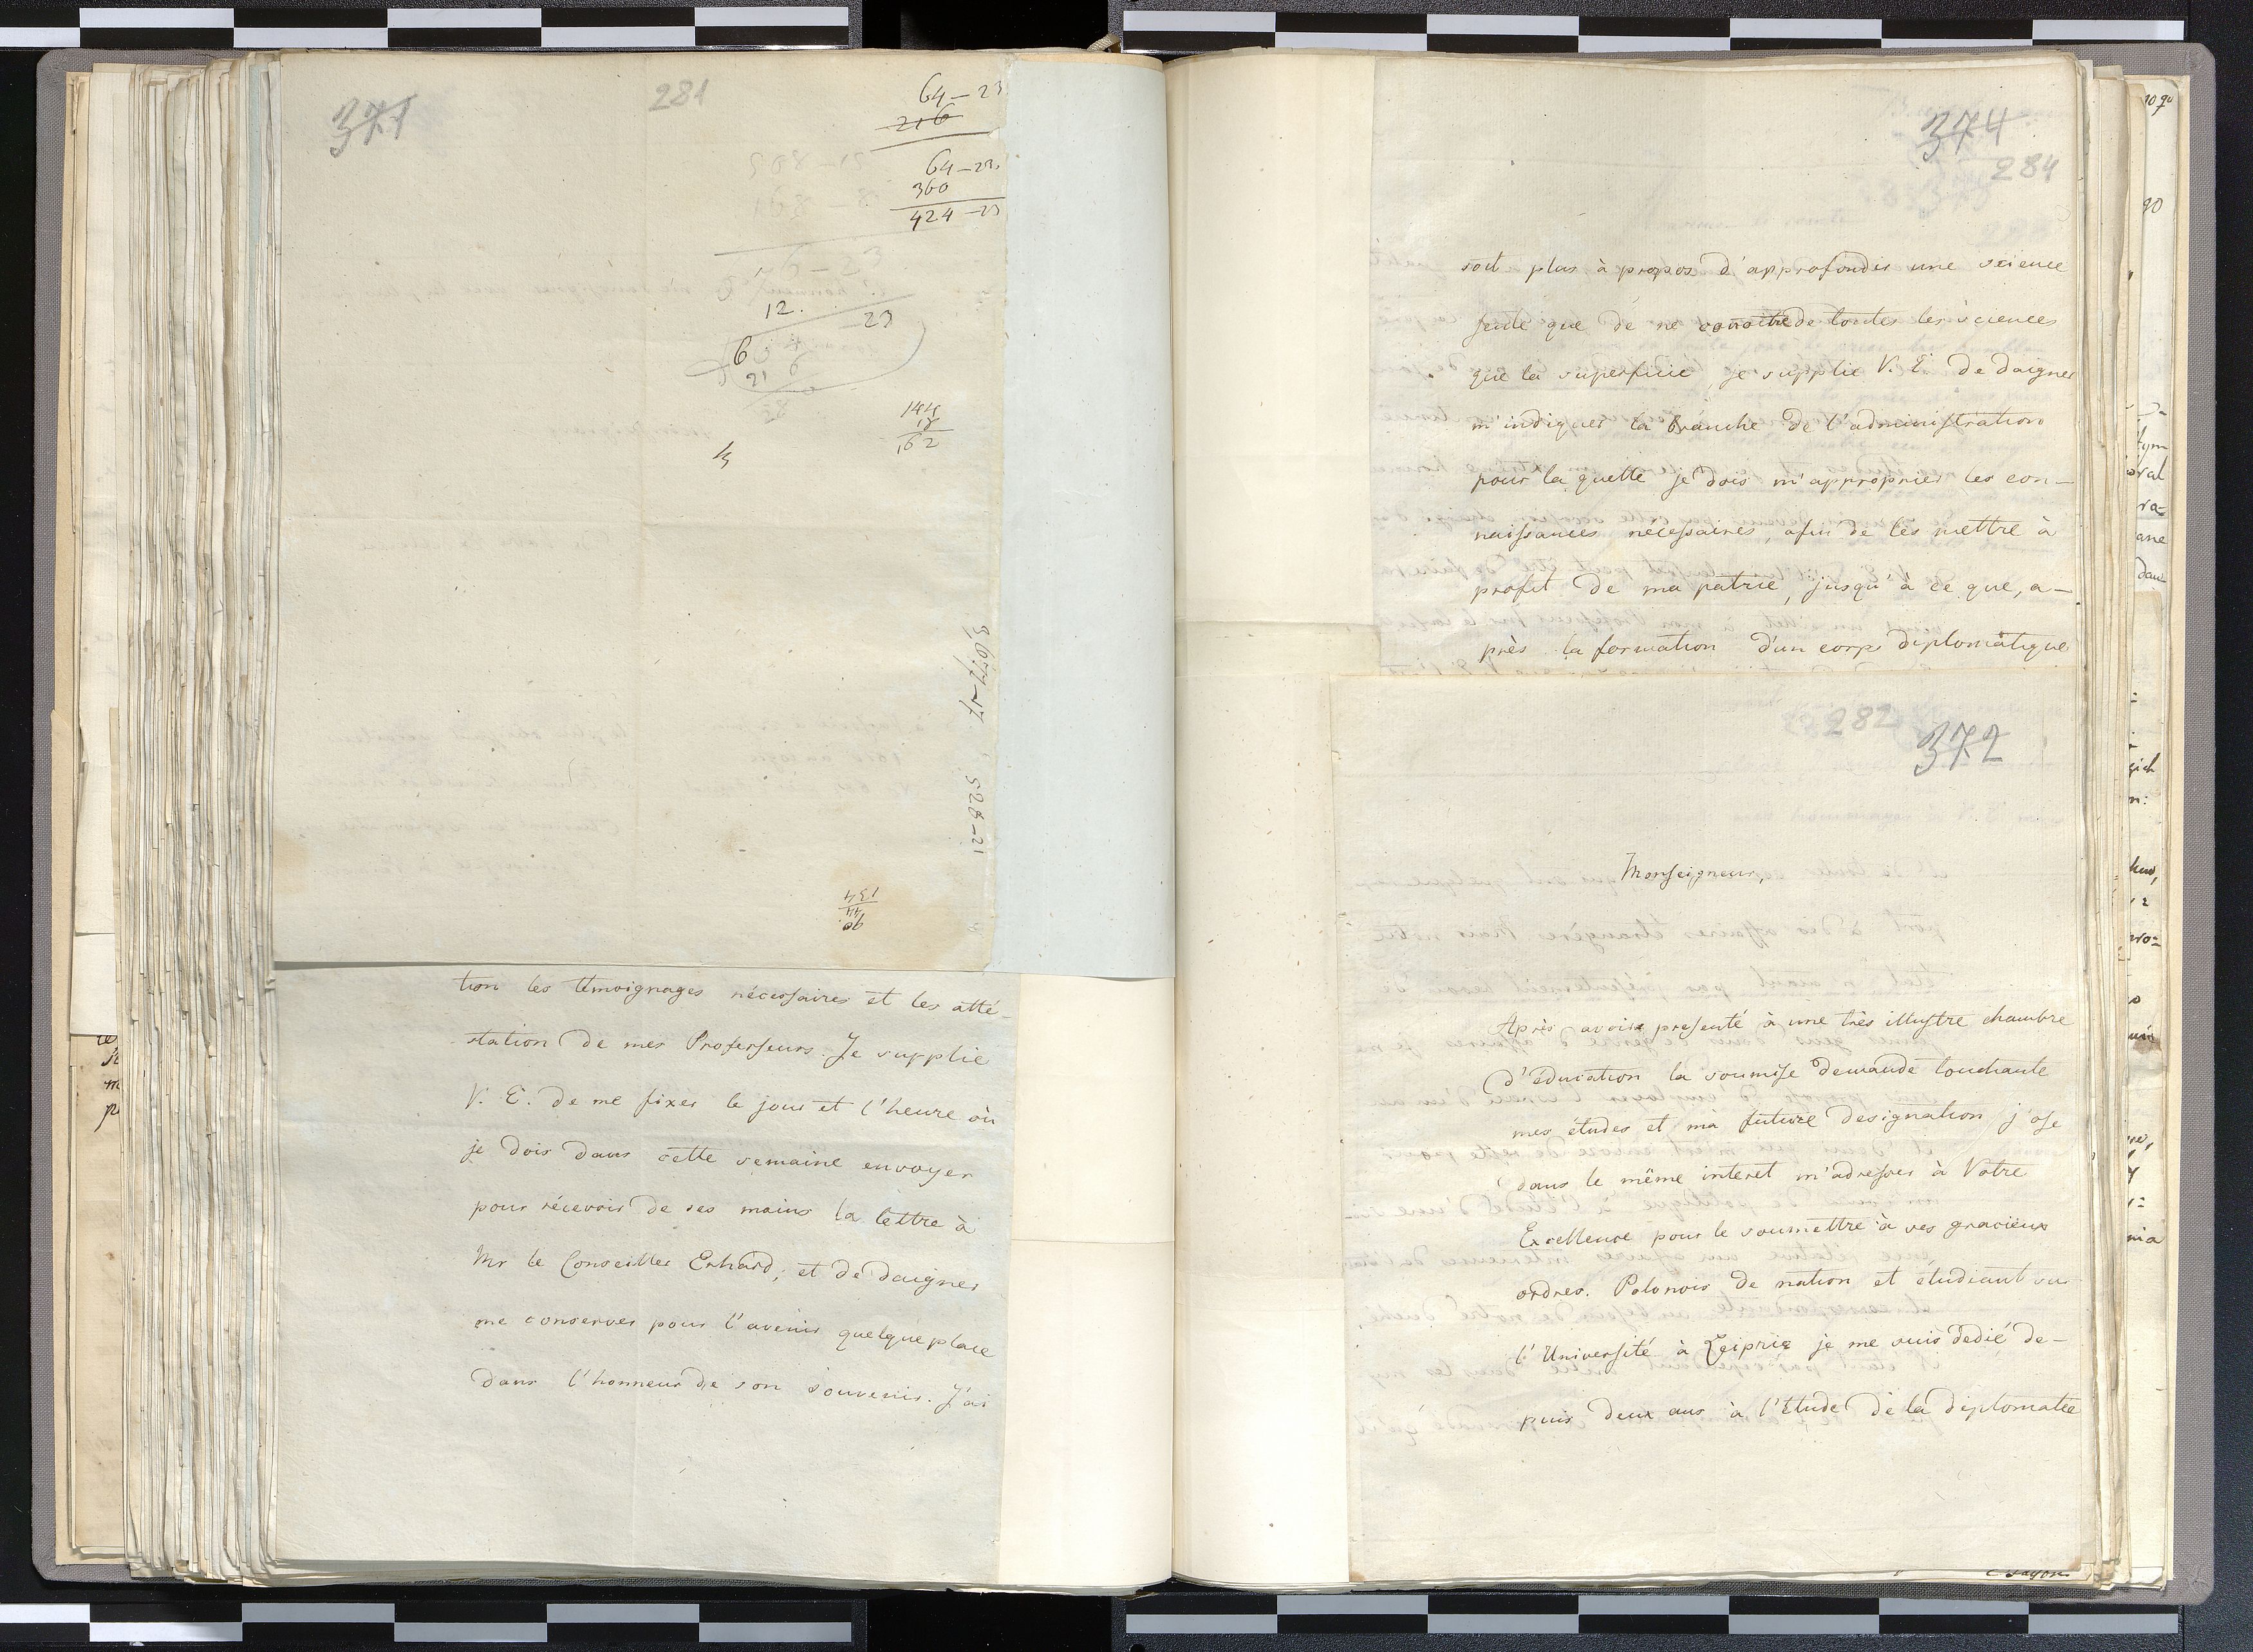 371
281
64–23
216
64–23
360
424–23
12.
23
6
21 6
144
18
162
3677–17
528–21
90
44
134
tion les témoignages nécessaires et les atté-
station de mes Professeurs. Je supplie
V. E. de me fixer le jour et l'heure où
je dois dans cette semaine envoyer
pour récevoir de ses mains la lettre à
Mr le Conseiller Erhard, et de daigner
me conserver pour l'avenir quelque place
dans l'honneur de son souvenir. J'ai
374
284
soit plus à propos d'approfondir une science
seule que de ne conoître de toutes les sciences
que la superficie, je supplie V. E. de daigner
m'indiquer la branche de l'administration
pour la quelle je dois m'approprier les con-
naissances nécessaires, afin de les mettre à
profit de ma patrie, jusqu'à ce que, a-
près la formation d'un corps diplomatique
282
372
Monseigneur,
Après avoir presenté à une très illustre chambre
d'éducation la soumise demande touchante
mes études et ma future designation j'ose
dans le même interet m'adresser à Votre
Excellence pour le soumettre à ses gracieux
ordres. Polonois de nation et étudiant sur
l'Université à Leipzig je me suis dedié de-
puis deux ans à l'étude de la diplomatie